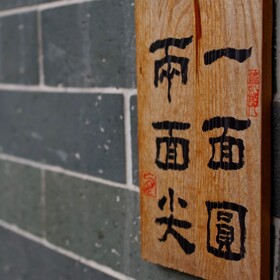 一面圓
兩面尖